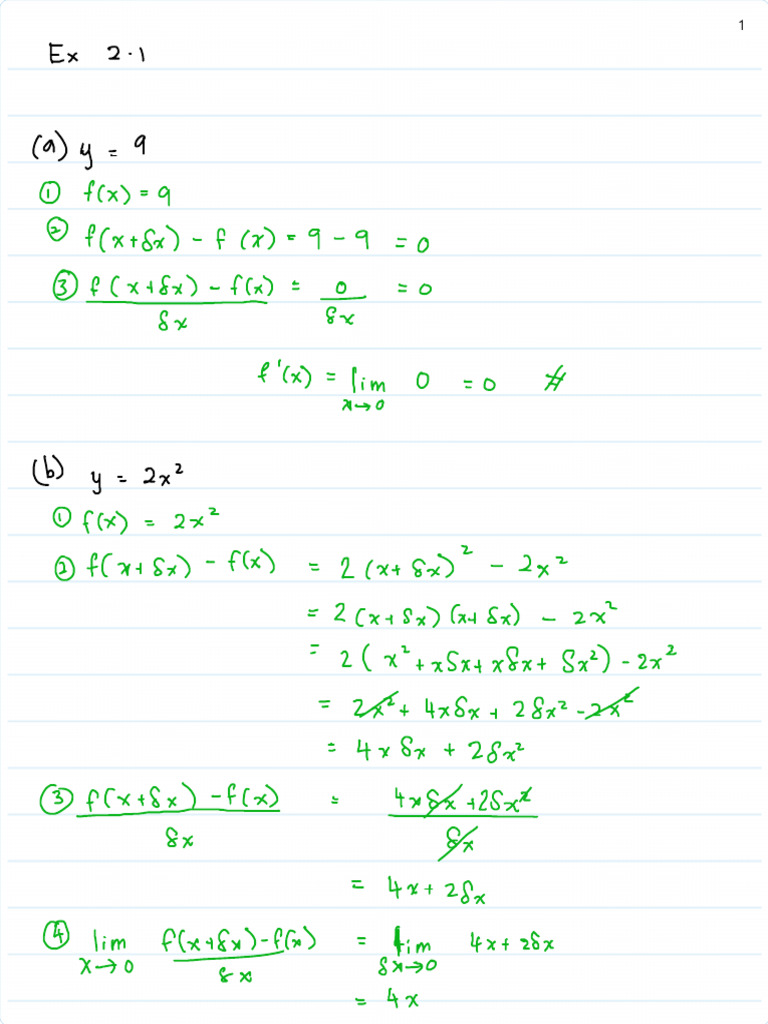 1
Ex 2.1
(a) y = 9
① f(x) = 9
② f(x+δx) - f(x) = 9 - 9 = 0
③ f(x+δx) - f(x) / δx = 0 / δx = 0
f'(x) = lim x→0 0 = 0 #
(b) y = 2x²
① f(x) = 2x²
② f(x+δx) - f(x) = 2(x+δx)² - 2x²
= 2(x+δx)(x+δx) - 2x²
= 2(x² + xδx + xδx + δx²) - 2x²
= 2x² + 4xδx + 2δx² - 2x²
= 4xδx + 2δx²
③ f(x+δx) - f(x) / δx = 4xδx + 2δx² / δx
= 4x + 2δx
④ lim x→0 f(x+δx) - f(x) / δx = lim δx→0 4x + 2δx
= 4x